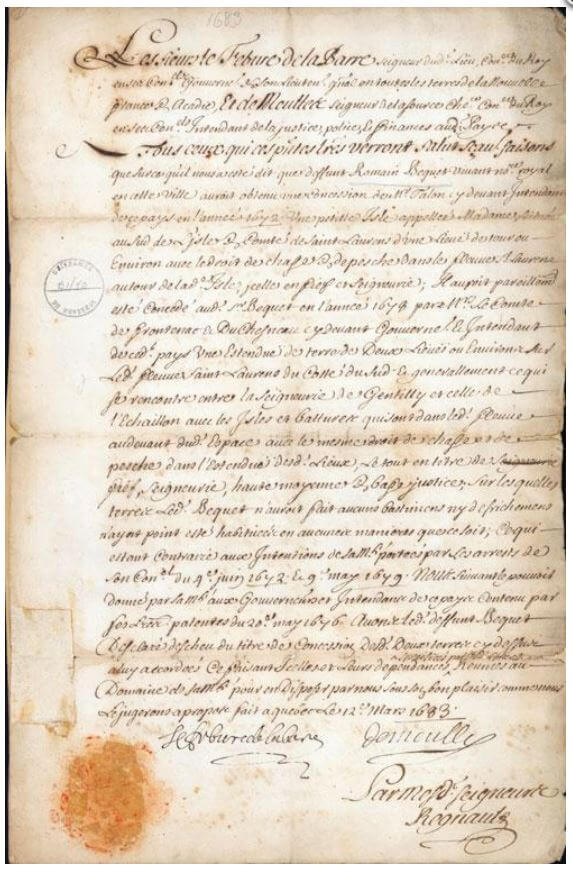 1683
Les sieurs le Febure de la Barre seigneur dud. Lieu, Con.er du Roy
en ses Con.els Gouverneur & son Lieuten.t gnāl en toutes les terres de la Nouvelle
france & Acadie, Et de Meulles seigneur de la source Che.r Con.er du Roy
en ses Con.els Intendant de la justice, police, & finances aud. Pays
A Tous ceux qui ces pñtes lrẽs verront salut sçauoir faisons
que sur ce qu'il nous a esté dit que deffunt Romain Bequet viuant no.re royal
en cette ville auroit obtenu une concession de M.r Talon cy deuant Intendant
de ce pays en l'année 1672 Une petitte Isle appellée Madame, scituée
au sud de L'isle & Comté de Saint Laurens d'une Lieue de tour ou
Enuiron auec le droit de chasse & de pesche dans le fleuue S. Laurens
autour de lad. Isle, icelle en fief et seigneurie; Il auroit pareillem.t
esté Concedé aud. s.r Bequet en l'année 1673 par M.rs Le Comte
de frontenac & DuChesneau cy deuant Gouuerne.r & Intendant
de ced. pays Une Estendue de terre de Deux Lieuës ou Enuiron sur
Led. fleuue Saint Laurens du Costé du Sud & generallement ce qui
se rencontre entre la Seigneurie de Gentilly et celle de
l'Echaillon auec les Isles et battures qui sont dans led. fleuue
audeuant dud. Espace auec le mesme droit de chasse et de
pesche dans l'estendue desd. Lieux, Le tout en titre de Seigneurie
fief, Seigneurie, haute moyenne & basse justice, sur lesquelles
terres Led. Bequet n'auroit fait aucuns bastimens ny defrichemens
n'ayant point esté habituées en aucunes manieres que ce soit; Ce qui
estant Contraire aux Intentions de sa M.té portées par les arrests de
son Con.el du 4.e juin 1672 & 9.e may 1679. Nous suiuant le pouuoir
donné par sa M.té aux Gouuerneurs et Intendans de ce pays Contenu par
ses Lrẽs patentes du 20.e may 1676 Auons led. deffunt Bequet
Declaré descheu du titre de Concession desd. Deux terres cy dessus
a luy accordées Ce faisant Icelles et Leurs dependances Reunies au
Domaine de sa M.té pour en Disposer par nous sous son bon plaisir comme nous
Le jugerons a propos fait a quebec Le 12.e Mars 1683.
Le Febure de la barre
demeulles
Par mesd. seigneurs
Regnault